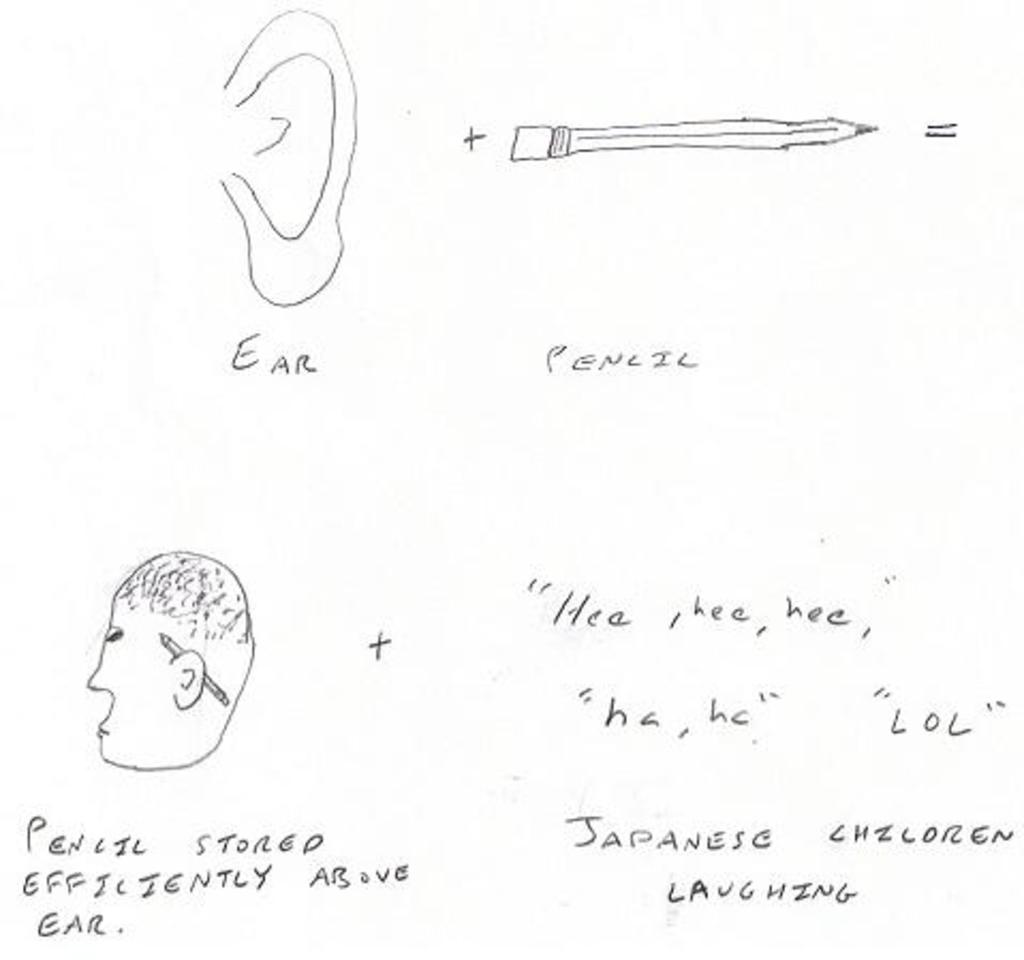 + =
EAR PENCIL
+ "Hee, hee, hee,"
"ha, ha" "LOL"
PENCIL STORED
EFFICIENTLY ABOVE
EAR.
JAPANESE CHILDREN
LAUGHING